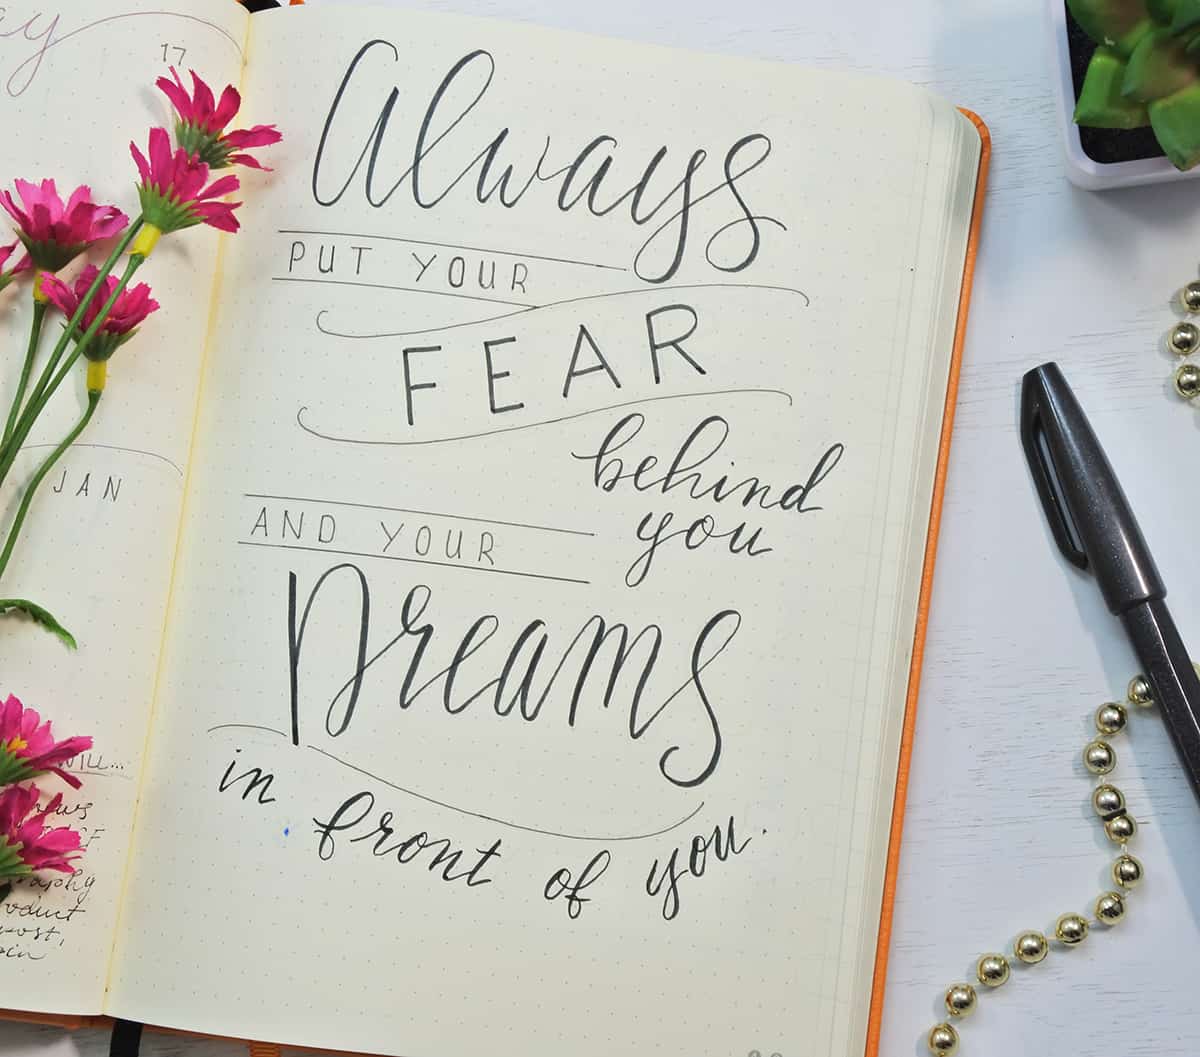 17
JAN
WILL...
Always
PUT YOUR
FEAR
behind
you
AND YOUR
Dreams
in front of you.